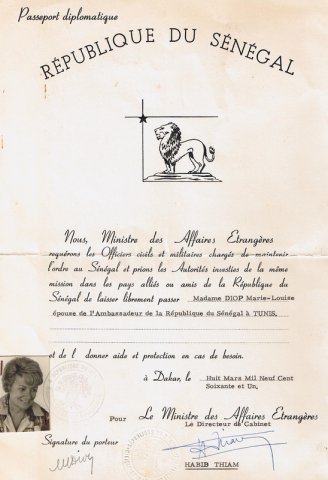 Passeport diplomatique
RÉPUBLIQUE DU SÉNÉGAL
Nous, Ministre des Affaires Etrangères
requérons les Officiers civils et militaires chargés de maintenir
l'ordre au Sénégal et prions les Autorités investies de la même
mission dans les pays alliés ou amis de la République du
Sénégal de laisser librement passer Madame DIOP Marie-Louise
épouse de l'Ambassadeur de la République du Sénégal à TUNIS.
et de l donner aide et protection en cas de besoin.
à Dakar, le Huit Mars Mil Neuf Cent
Soixante et Un,
Pour Le Ministre des Affaires Etrangères
Le Directeur de Cabinet
Signature du porteur
HABIB THIAM